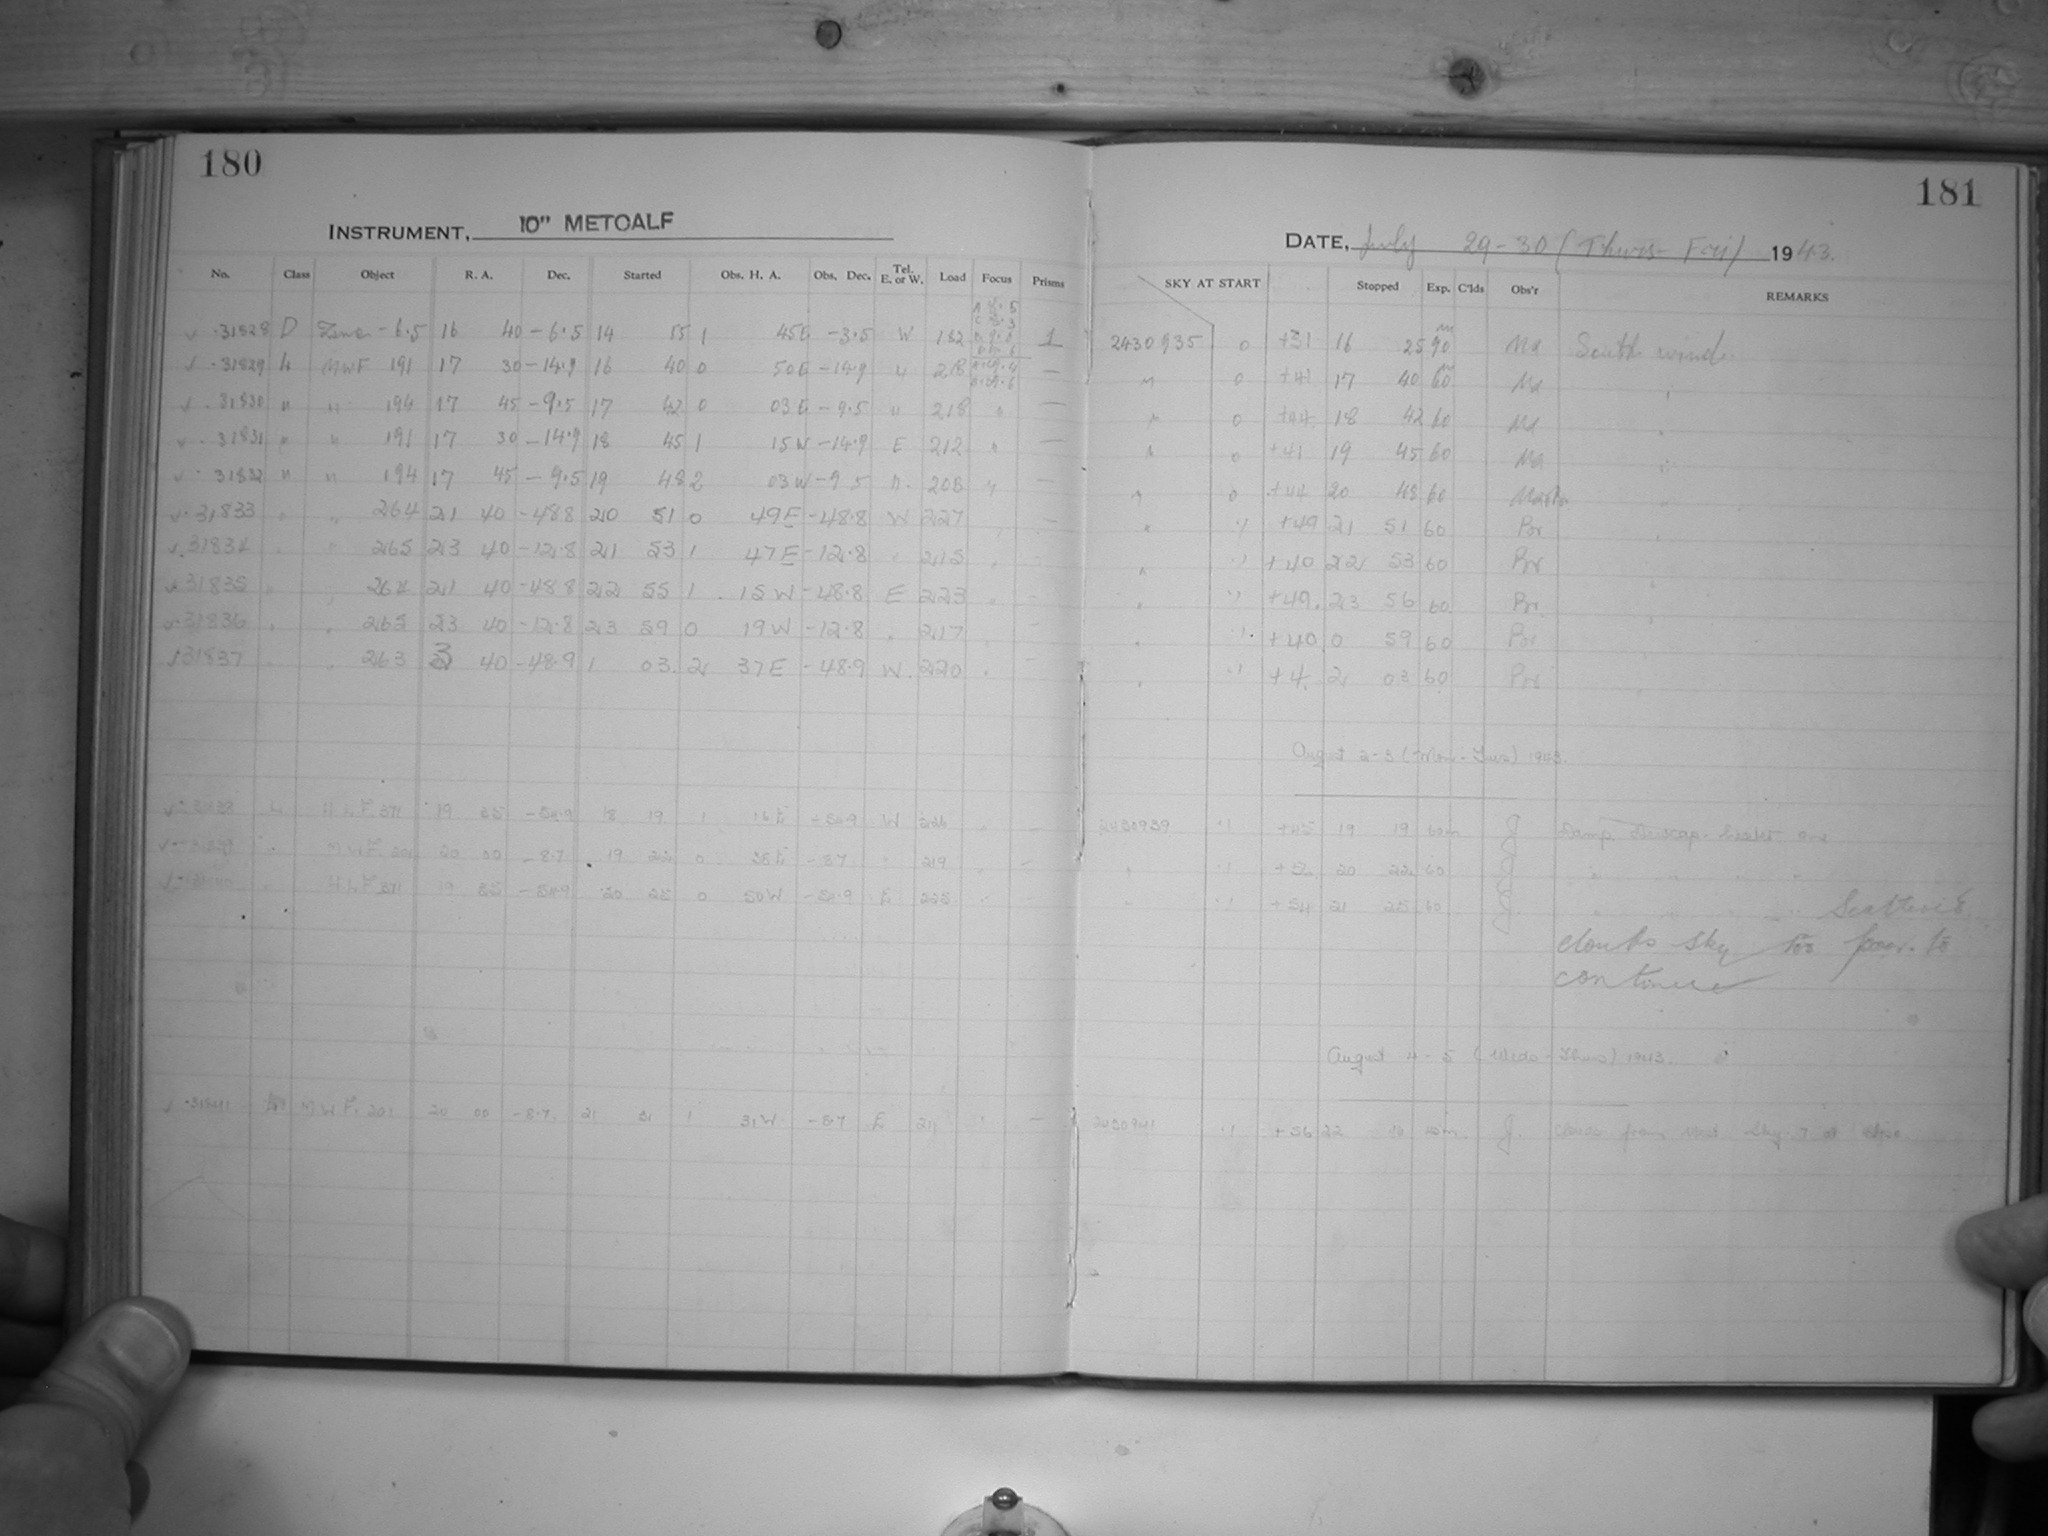 180
181
INSTRUMENT, 10" METCALF
DATE, July 29-30 (Thurs-Fri) 1943.
No. Class Object R. A. Dec. Started Obs. H. A. Obs. Dec. Tel. E. or W. Load Focus Prisms SKY AT START Stopped Exp. C'lds Obs'r REMARKS
31828 D Zone -6.5 16 40 -6.5 14 55 1 45E -3.5 W 182 1 2430935 0 +31 16 25 90 Ma South wind
31829 MWF 191 17 30 -14.9 16 40 0 50E -14.9 " 218 — " 0 +41 17 40 60 Ma "
31830 " " 194 17 45 -9.5 17 42 0 03E -9.5 " 218 " — " 0 +44 18 42 60 Ma "
31831 " " 191 17 30 -14.9 18 45 1 15W -14.9 E 212 " — " 0 +41 19 45 60 Ma "
31832 " " 194 17 45 -9.5 19 48 2 03W -9.5 " 208 " — " 0 +44 20 48 60 "
31833 " " 264 21 40 -48.8 20 51 0 49E -48.8 W 227 " — " +49 21 51 60 Br "
31834 " " 265 23 40 -12.8 21 53 1 47E -12.8 " 215 " — " +40 22 53 60 Br "
31835 " " 264 21 40 -48.8 22 55 1 15W -48.8 E 223 " — " +49 23 56 60 Br "
31836 " " 265 23 40 -12.8 23 59 0 19W -12.8 " 217 " — " +40 0 59 60 Br "
31837 " " 263 3 40 -48.9 1 03 2 37E -48.9 W 220 " — " 2 03 60 Br "
August 2-3 (Mon-Tues) 1943.
19 18 19 1 16E W 226 " — 2430939 +45 19 19 60m J Damp. Dewcap-heater one
MWF. 201 20 00 -8.7 19 22 0 38E -8.7 " 219 " — " 20 22 60 J " " " "
19 20 25 0 50W E 225 " — " +54 21 25 60 J " " " " Scattered
clouds sky too poor to
continue
August 4-5 (Weds-Thurs) 1943.
31841 MWF. 201 20 00 -8.7 21 31 1 31W -8.7 E 211 " — 2430941 +56 22 J. Clouds from West Sky